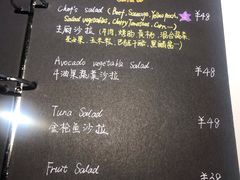 Chef's salad (Beef, Sausage, Yellow peach, ¥48
Salad vegetables, Cherry Tomatoes, Corn...)
主厨沙拉 (牛肉, 烤肠, 黄桃, 混合蔬菜
玉米粒, 黑醋酱)
Avocado vegetable Salad.
牛油果蔬菜沙拉 ¥48
Tuna Salad
金枪鱼沙拉 ¥48
Fruit Salad